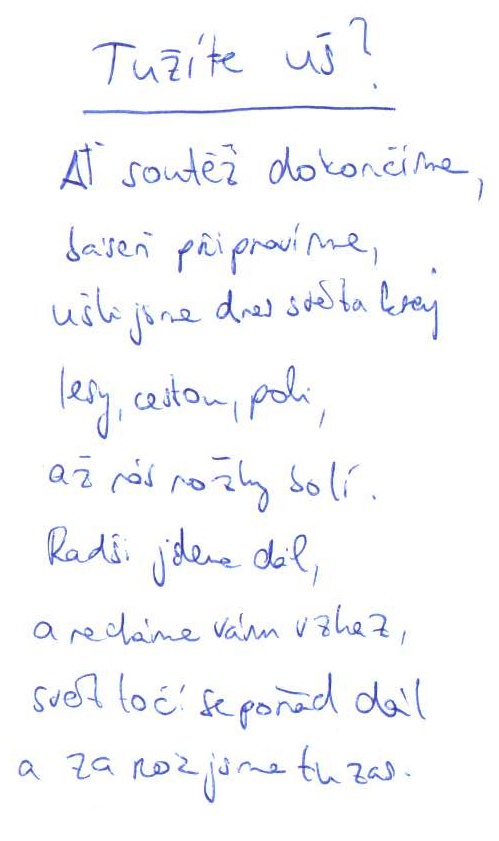 Tužíte uš?
Ať soutěž dokončíme,
báseň připravíme,
ušli jsme dnes světa kraj
lesy, cestou, poli,
až nás nožky bolí.
Radši jdeme dál,
a necháme vám vzkaz,
svět točí se pořád dál
a za rok jsme tu zas.